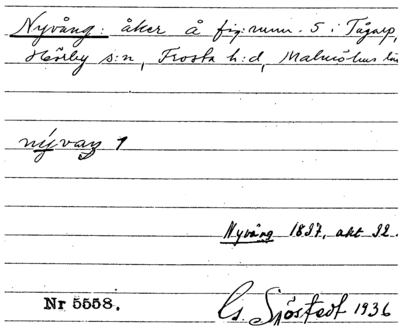 Nyvång: åker å fig:num. 5 i Tågarp,
Hörby s:n, Frosta h:d, Malmöhus län
nývaŋ 1
Nyvång 1837, akt 32.
Nr 5558.
Cs. Sjöstedt 1936